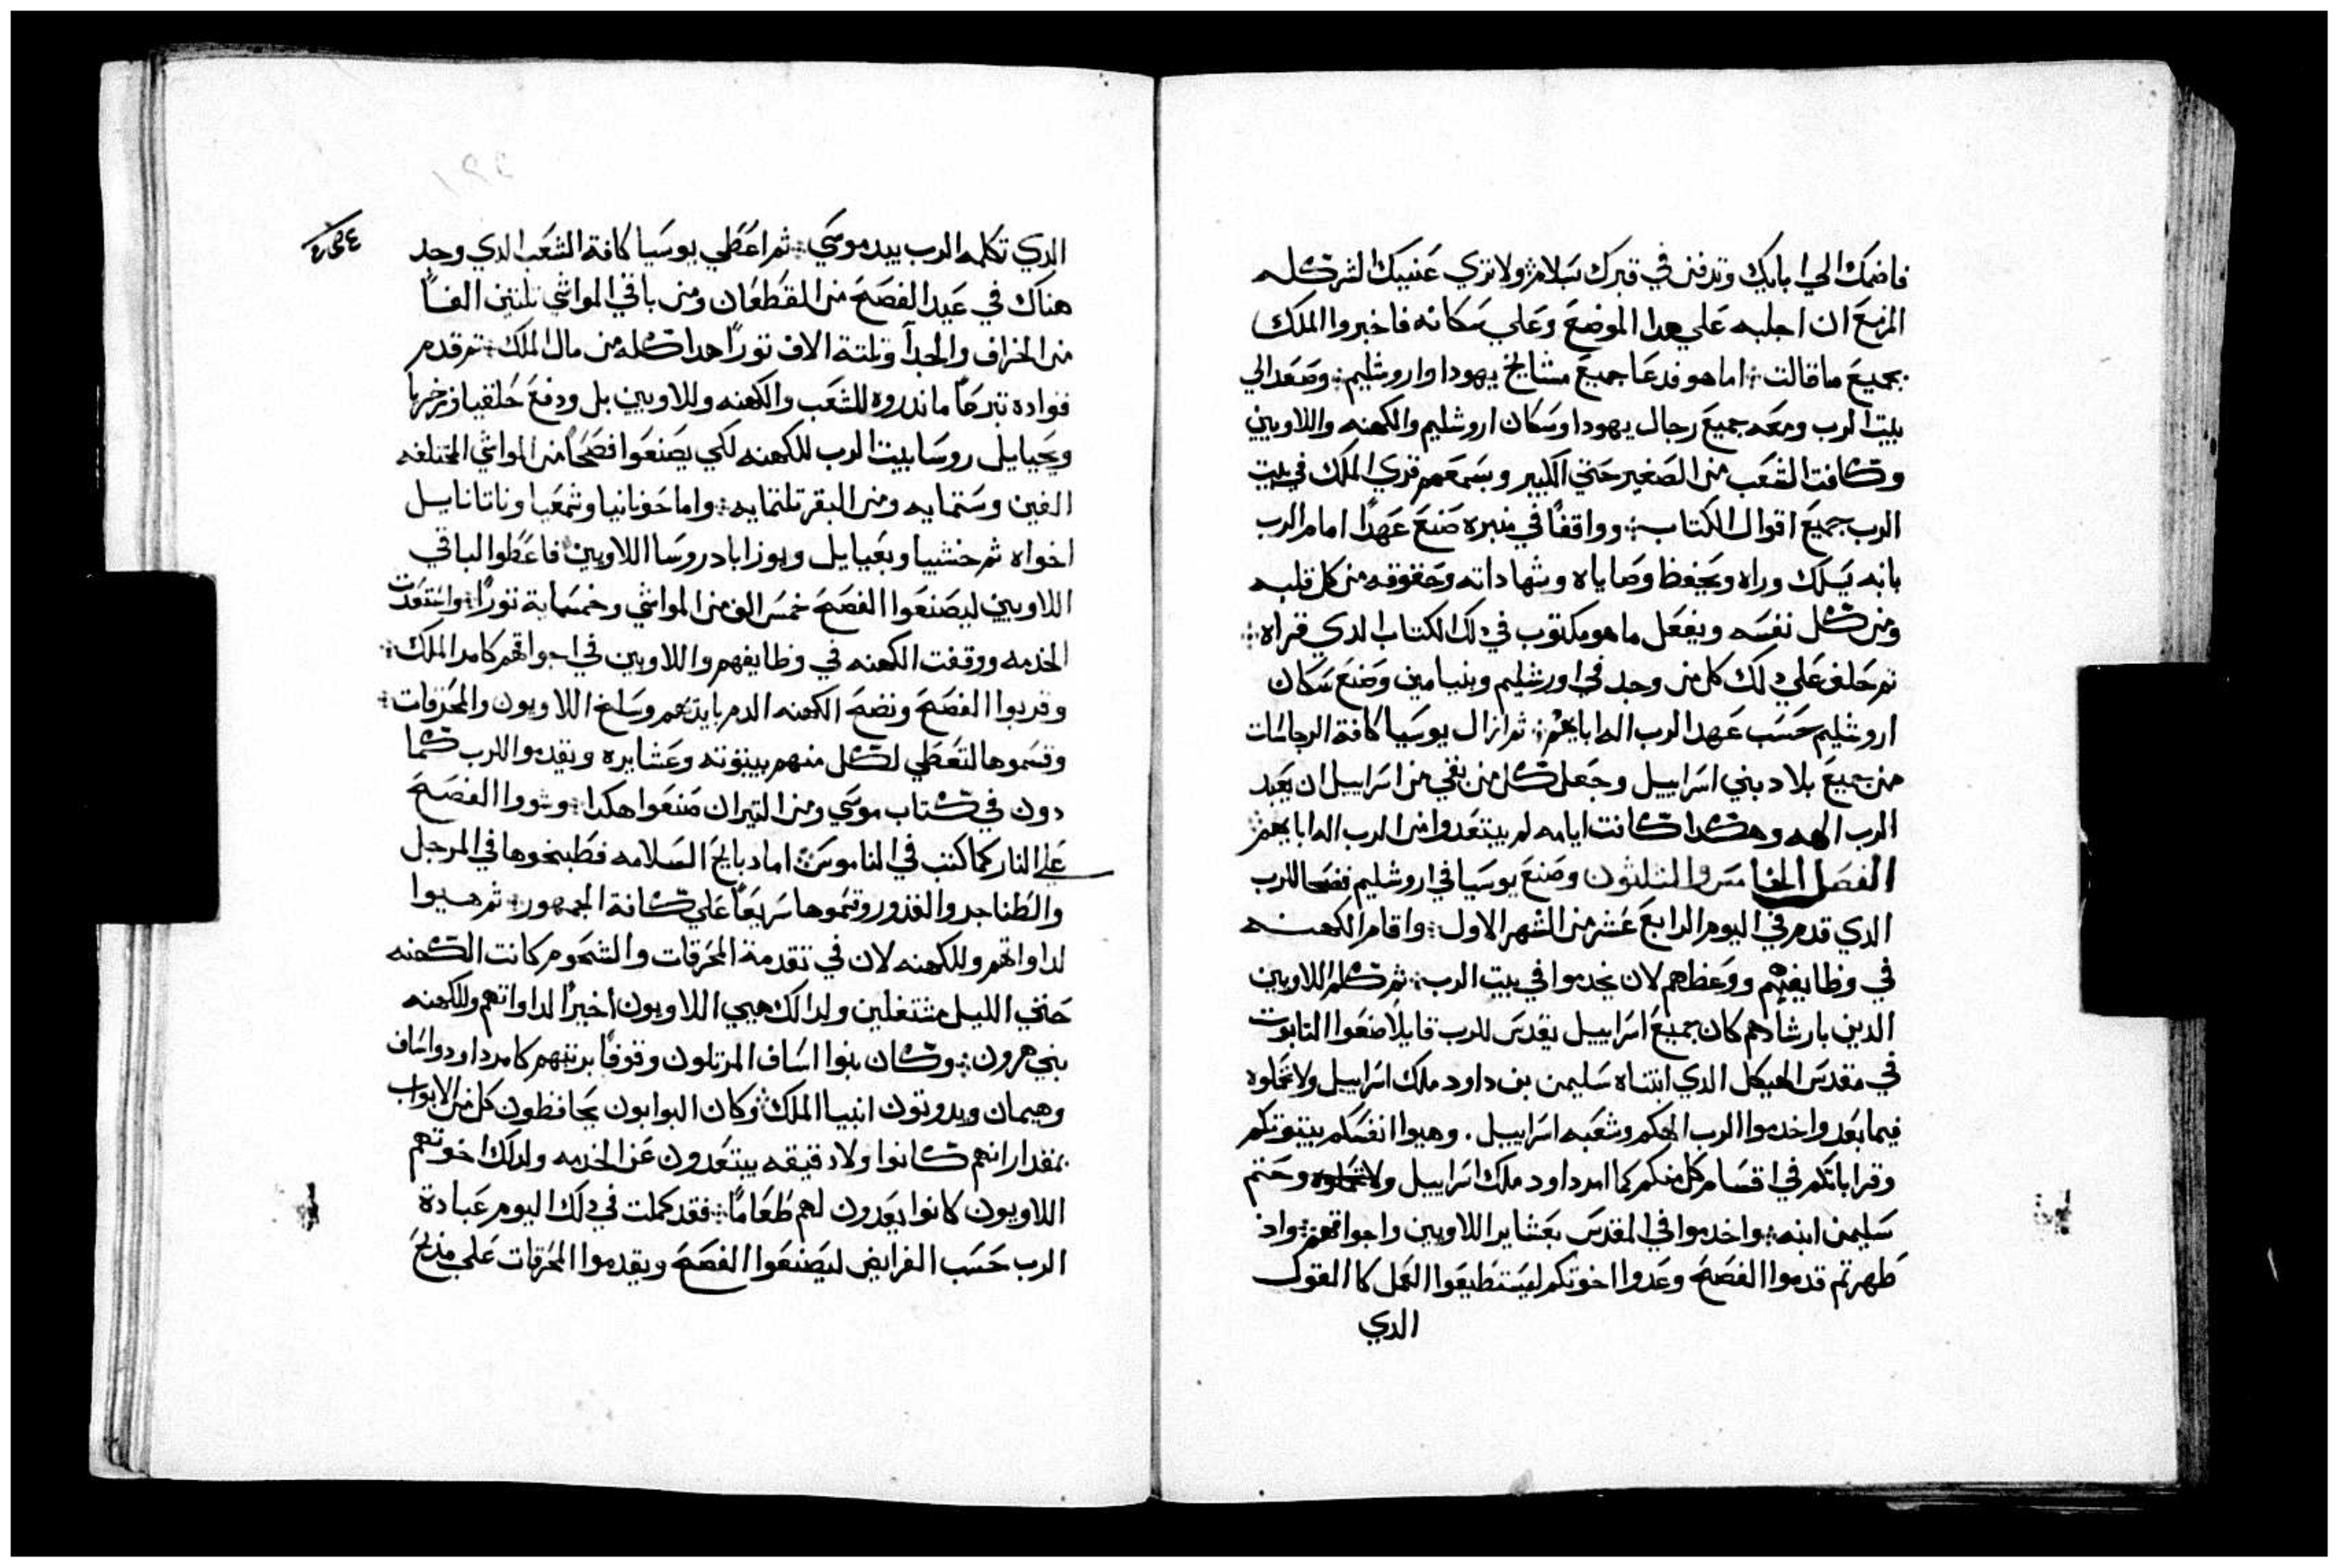 فاضمك الي ابايك وتدفن في قبرك بسلام ولا تري عنييك الشر كله
المزمع ان اجلبه علي هدا الموضع وعلي سكانه فاخبروا الملك
بجميع ما قالت اما هو فدعا جميع مشايخ يهودا واروشليم وصعد الي
بيت الرب ومعه جميع رجال يهودا وسكان اروشليم والكهنه واللاويين
وكافت الشعب من الصغير حتي الكبير وبسمعهم قري الملك في بيت
الرب جميع اقوال الكتاب وواقفا في منبره صنع عهدا امام الرب
بانه يسلك وراه ويحفظ وصاياه وشهاداته وحقوقه من كل قلبه
ومن كل نفسه ويفعل ما هو مكتوب في دلك الكتاب الدي قراه
ثم حلف علي دلك كل من وجد في اورشليم وبنيامين وصنع سكان
اروشليم حسب عهد الرب اله ابايهم ثم ازال يوسيا كافة الرجاسات
من جميع بلاد بني اسراييل وجعل كل من بقي من اسراييل ان يعبد
الرب الهه وهكدا كانت ايامه لم يبتعدوا من الرب اله ابايهم
الفصل الخامس والتلتون وصنع يوسيا في اروشليم فصحا للرب
الدي قدم في اليوم الرابع عشر من الشهر الاول واقام الكهنه
في وظايفهم ووعظهم لان يخدموا في بيت الرب ثم كلم اللاويين
الدين بارشادهم كان جميع اسراييل يقدس للرب قايلا ضعوا التابوت
في مقدس الهيكل الدي ابتناه سليمن بن داود ملك اسراييل ولا تحملوه
فيما بعد واخدموا الرب الهكم وشعبه اسراييل. وهيوا انفسكم ببيوتكم
وقراباتكم في اقسام كل منكم كما امر داود ملك اسراييل وحتم
سليمن ابنه واخدموا في المقدس بعشاير اللاويين واجواقهم واد
طهرتم قدموا الفصح وعدوا اخوتكم ليستطيعوا العمل كا القول
الدي
الدي تكلمه الرب بيد موسي ثم اعطي يوسيا كافة الشعب الدي وجد
هناك في عيد الفصح من القطعان ومن باقي المواشي تلتين الفا
من الخراف والجدا وتلتة الاف تورا هدا كله من مال الملك ثم قدم
قواده تبرعا ما ندروه للشعب والكهنه وللاويين بل ودفع حلقيا وزخريا
ويحيايل روسا بيت الرب للكهنه لكي يصنعوا فصحا من المواشي المختلفه
الفين وستمايه ومن البقر تلتمايه واما حونانيا وشمعيا وناتانايل
اخواه ثم حشبيا ويعيايل ويوزاباد روسا اللاويين فاعطوا لباقي
اللاويين ليصنعوا الفصح خمس الف من المواشي وخمسماية تورا واستعدت
الخدمه ووقفت الكهنه في وظايفهم واللاويين في اجواقهم كامر الملك
وقربوا الفصح ونضح الكهنه الدم بايديهم وسلخ اللاويون والمحرقات
وقسموها لتعطي لكل منهم ببيوته وعشايره ويقدموا للرب كما
دون في كتاب موسي ومن التيران صنعوا هكدا وشووا الفصح
علي النار كما كتب في الناموس اما دبايح السلامه فطبخوها في المرجل
والطناجر والقدور وقسموها سريعا علي كافة الجمهور ثم هيوا
لداواتهم وللكهنه لان في تقدمة المحرقات والشحوم كانت الكهنه
حتي الليل مشتغلين ولدالك هيي اللاويون اخيرا لداواتهم وللكهنه
بني هرون وكان بنوا اساف المرتلون وقوفا برتبهم كامر داود واساف
وهيمان ويدوتون انبيا الملك وكان البوابون يحافظون كل من الابواب
بمقدار انهم كانوا ولا دقيقه يبتعدون عن الخدمه ولدلك اخوتهم
اللاويون كانوا يعدون لهم طعاما فقد كملت في دلك اليوم عبادة
الرب حسب الفرايض ليصنعوا الفصح ويقدموا المحرقات علي مدبح